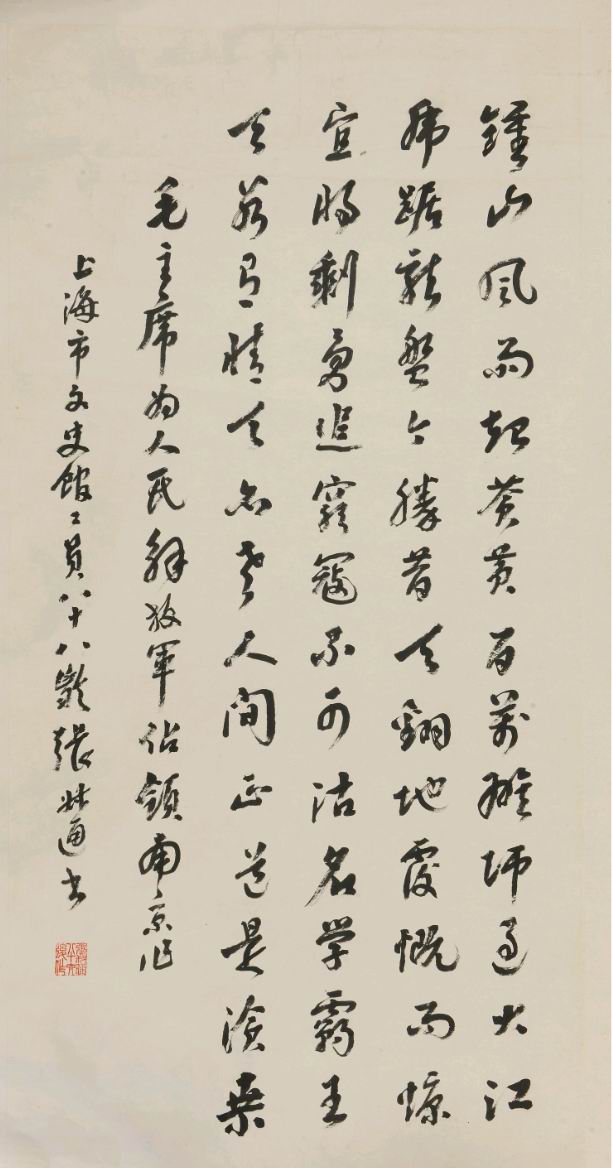 鍾山風雨起蒼黃百萬雄師過大江
虎踞龍盤今勝昔天翻地覆慨而慷
宜將剩勇追窮寇不可沽名学霸王
天若有情天亦老人間正道是滄桑
毛主席為人民解放軍佔領南京作
上海市文史館〻員八十八歲張叔通书